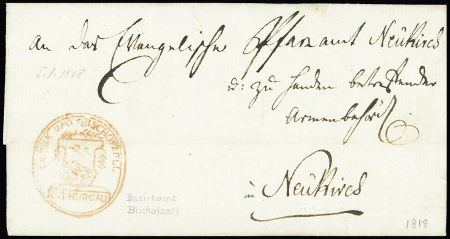 An das Evangelische Pfarramt Neukirch
u: zu handen betreffender
Armenbehörd
in Neukirch
5.1.1818
BEZIRK AMT BISCHOFZELL
K. THURGAU
Bezirksamt
Bischofszell
1818